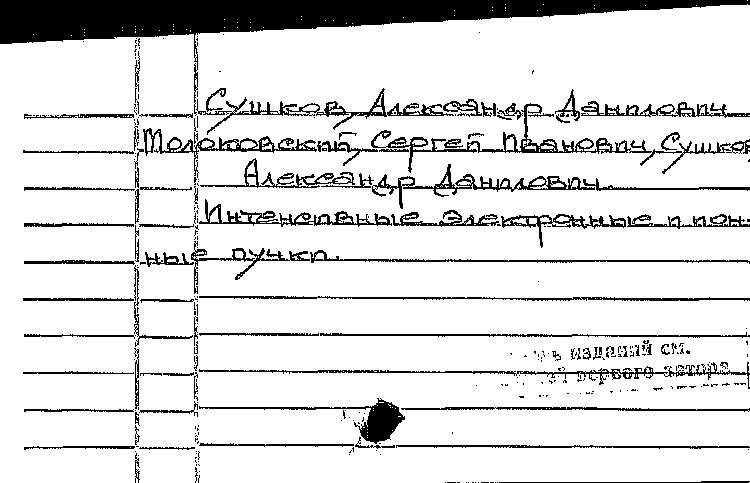 Сушков, Александр Данилович
Молоковский, Сергей Иванович, Сушков
Александр Данилович.
Интенсивные электронные и ион-
ные пучки.
изданий см.
первого автора